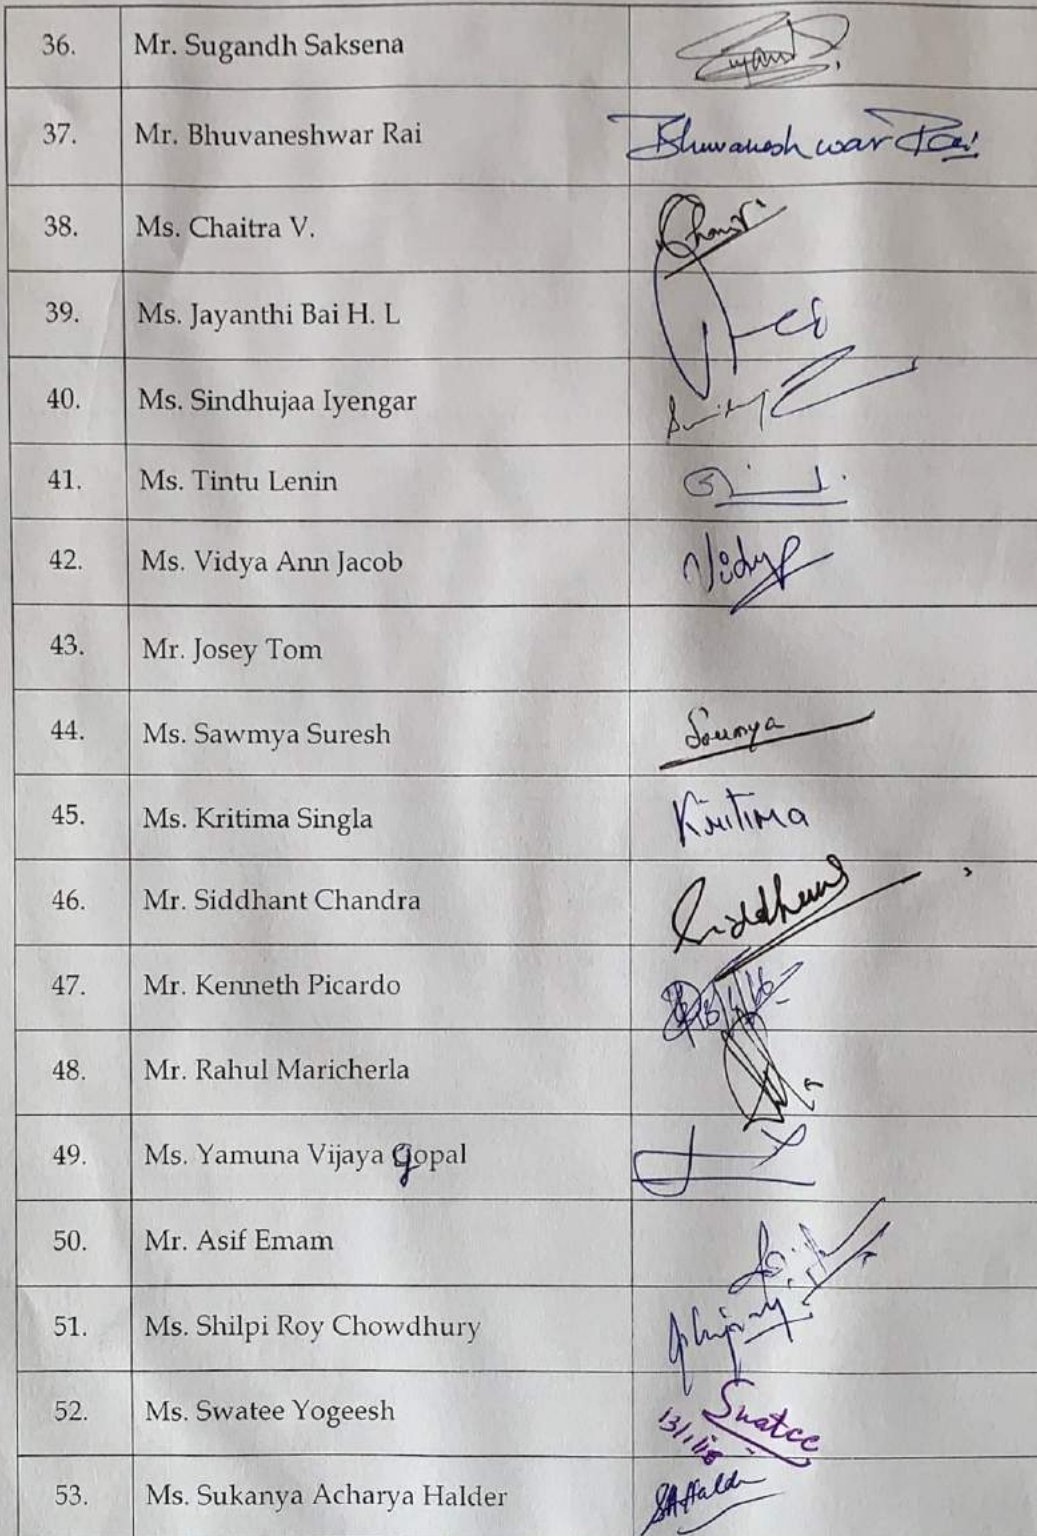 36. Mr. Sugandh Saksena
37. Mr. Bhuvaneshwar Rai Bhuvaneshwar Rai
38. Ms. Chaitra V.
39. Ms. Jayanthi Bai H. L
40. Ms. Sindhujaa Iyengar
41. Ms. Tintu Lenin
42. Ms. Vidya Ann Jacob Vidya
43. Mr. Josey Tom
44. Ms. Sawmya Suresh Soumya
45. Ms. Kritima Singla Kritima
46. Mr. Siddhant Chandra
47. Mr. Kenneth Picardo
48. Mr. Rahul Maricherla
49. Ms. Yamuna Vijaya gopal
50. Mr. Asif Emam
51. Ms. Shilpi Roy Chowdhury
52. Ms. Swatee Yogeesh Swatee
53. Ms. Sukanya Acharya Halder SAHalder